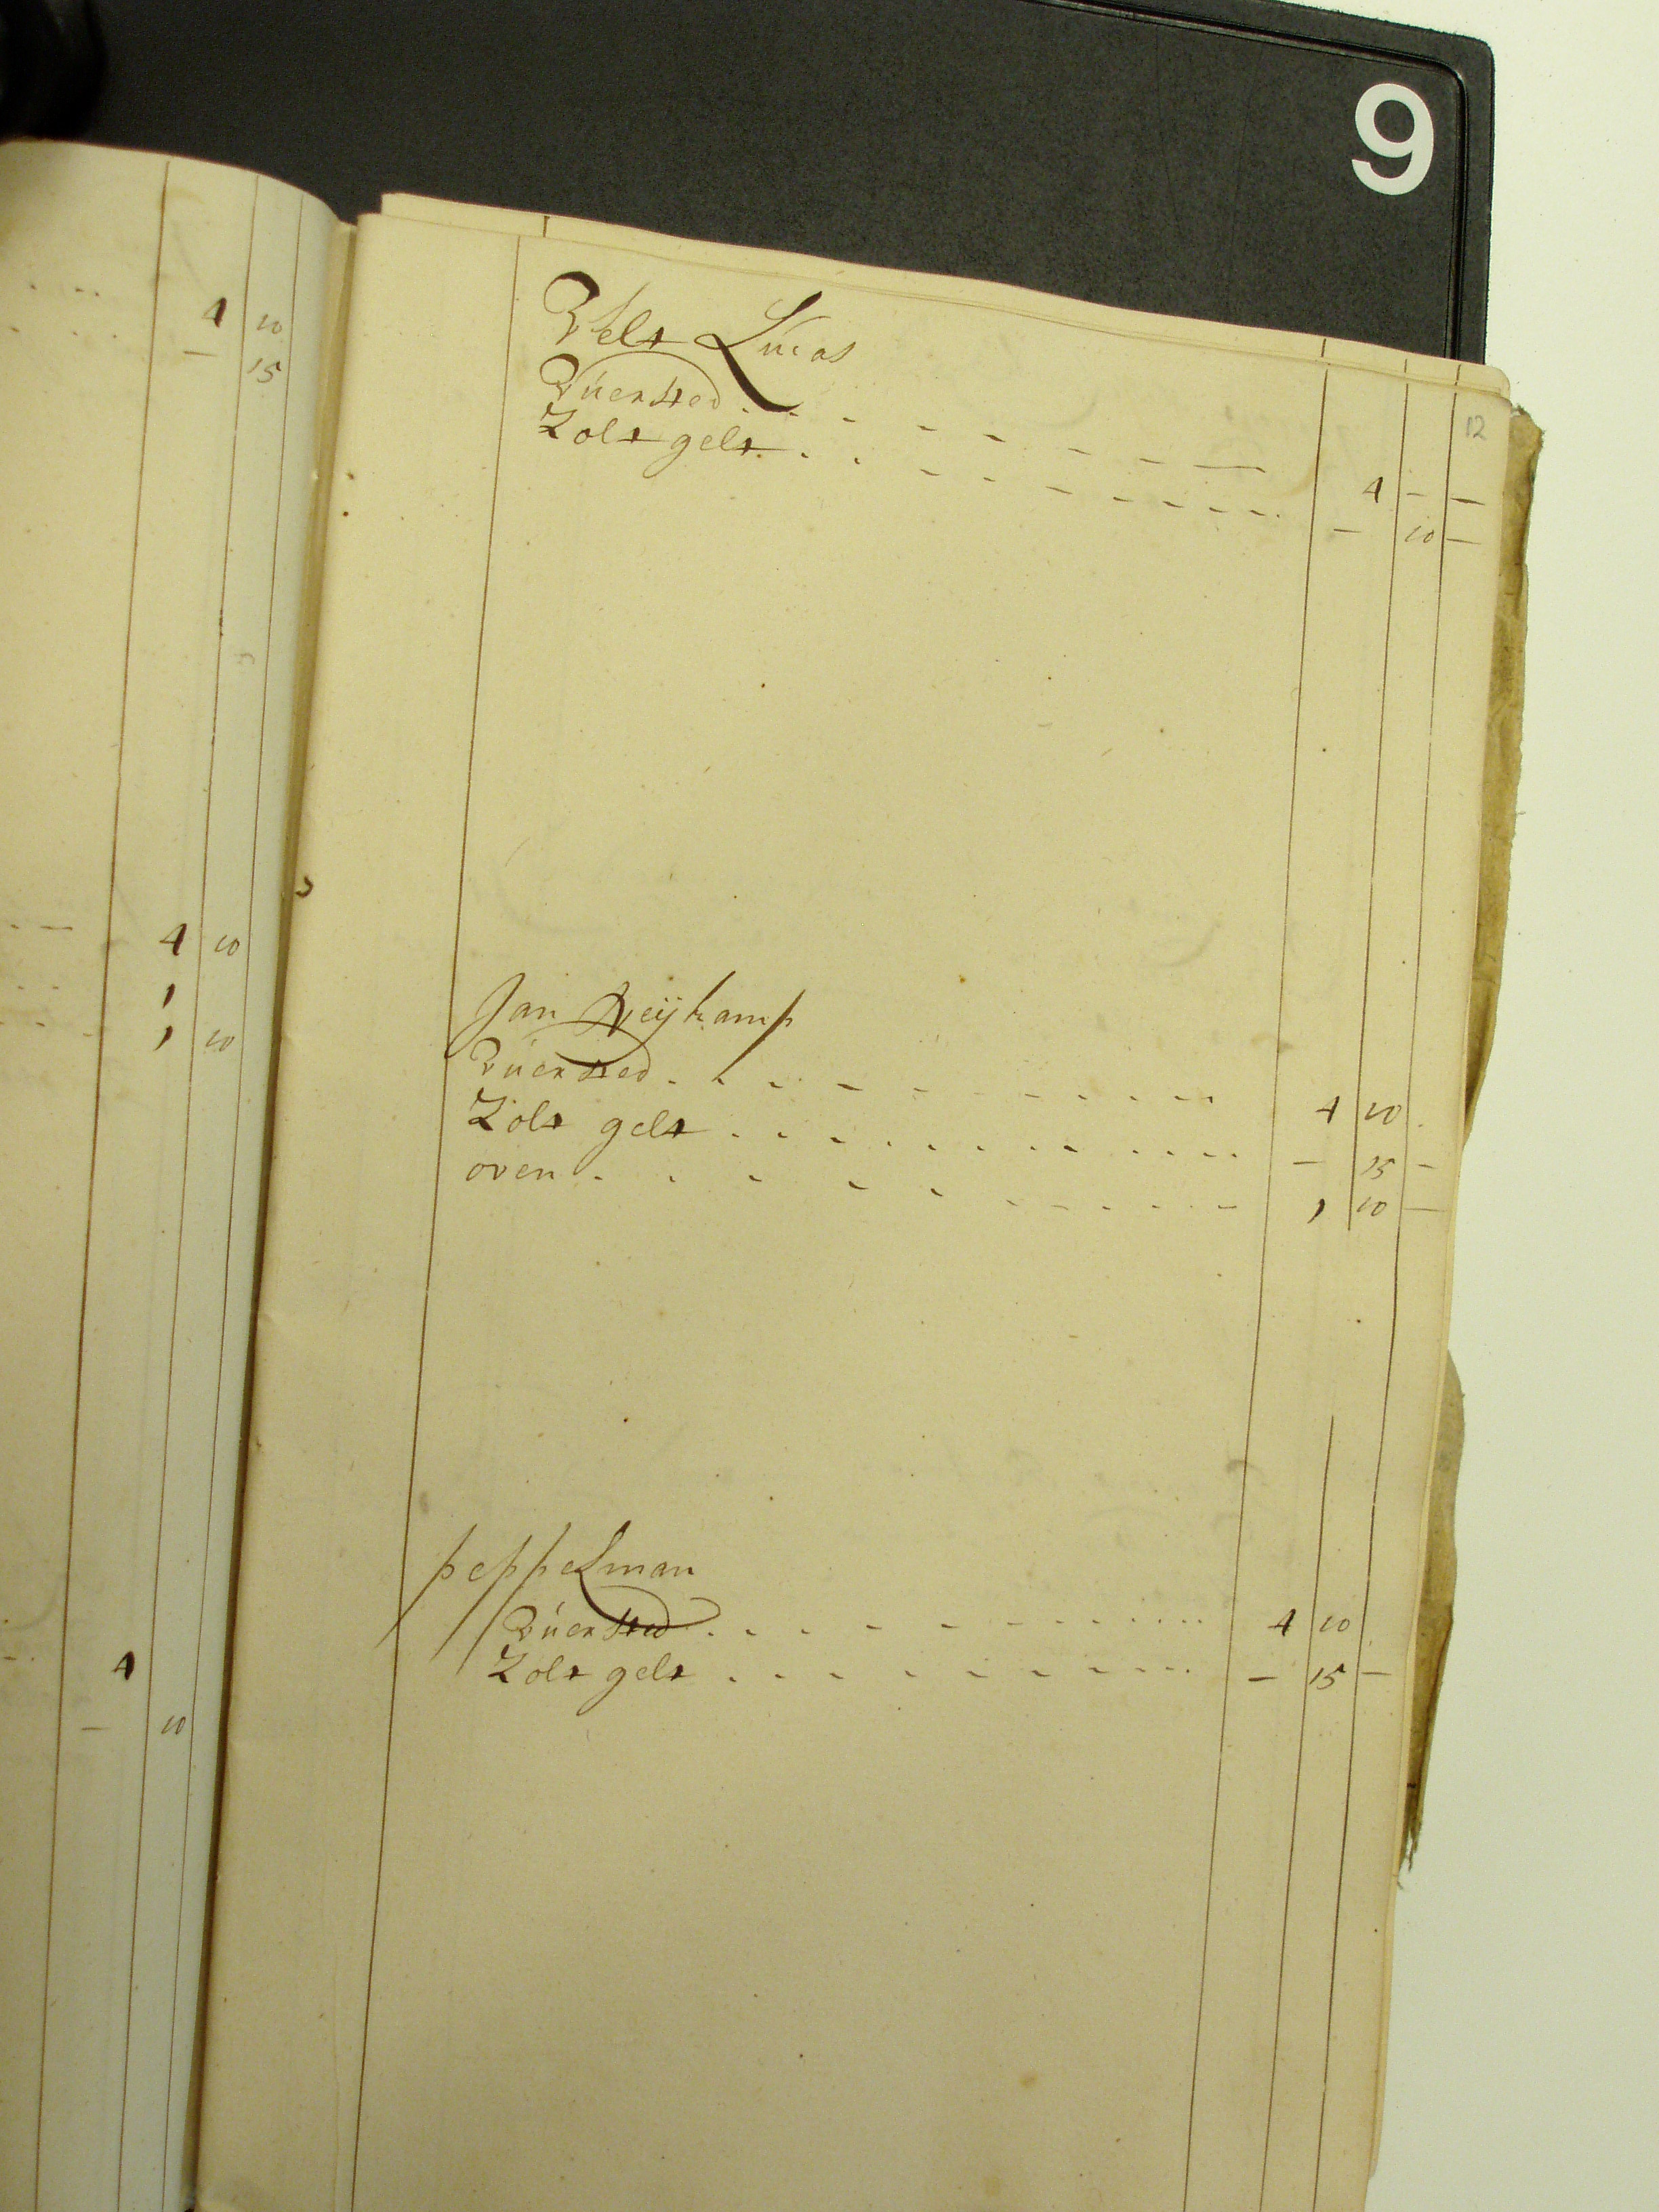 9
12
4 10
— 15
4 10
1
1 10
4
— 10
Velt Lucas
Vuersted 4 — —
Zolt gelt — 10 —
Jan Neijkamp
Vuersted 4 10
Zolt gelt — 15 —
oven 1 10 —
peppelman
Vuersted 4 10
Zolt gelt — 15 —